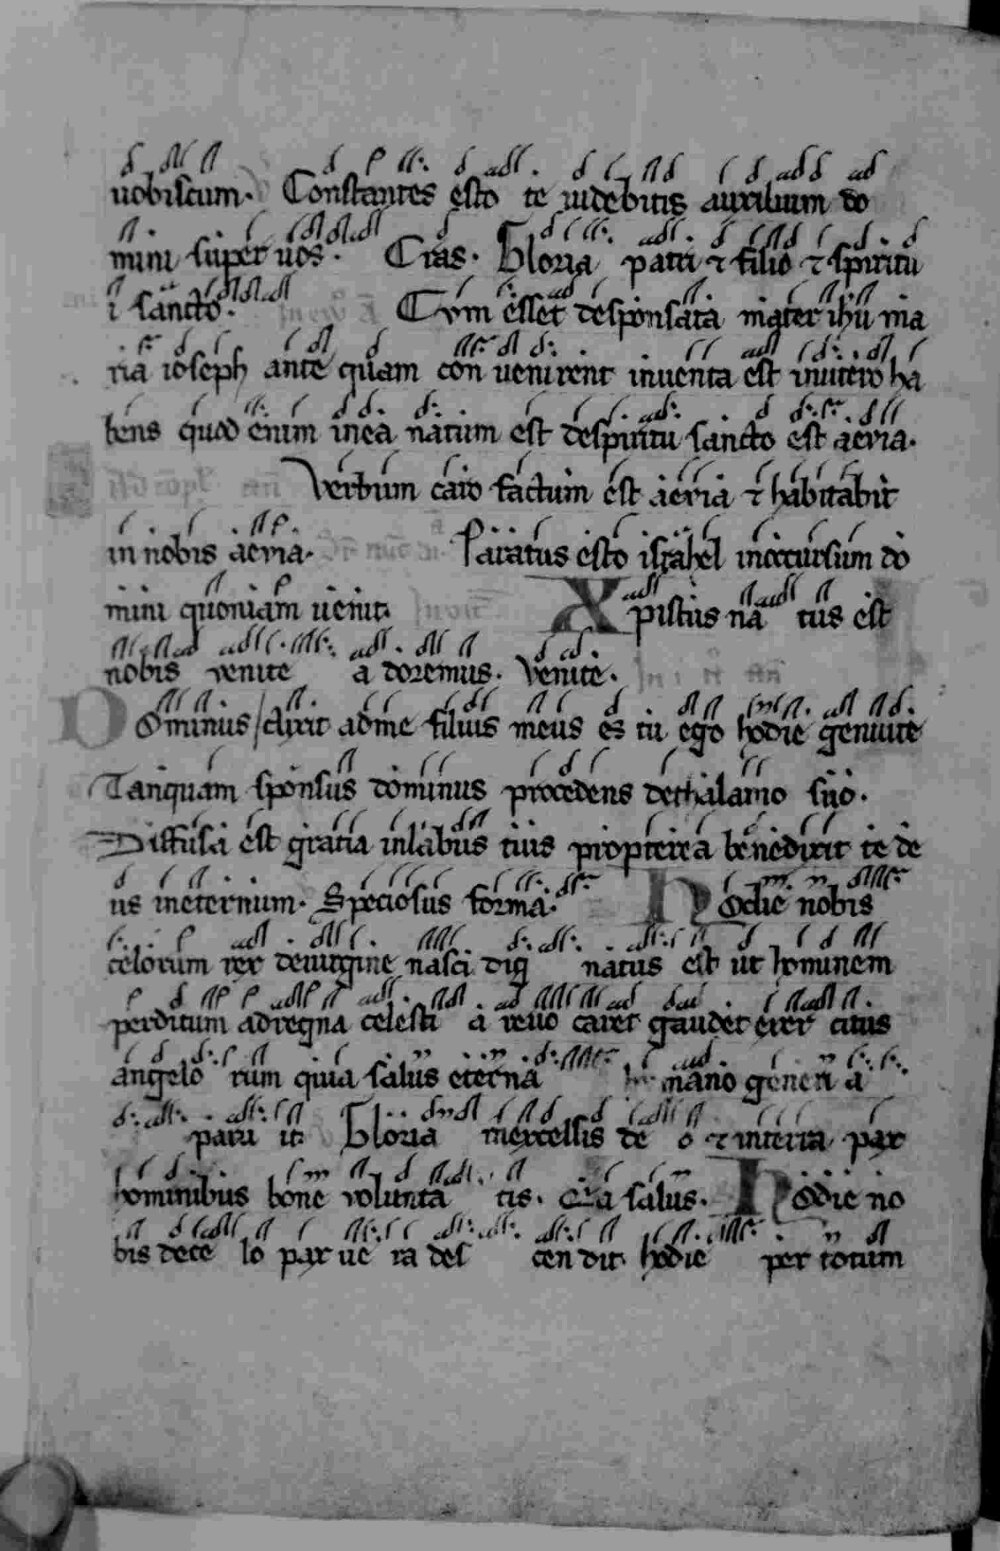 uobiscum. Constantes esto te uidebitis auxilium do
mini super uos. Cras. Gloria patri ⁊ filio ⁊ spiritu
i sancto. Cum esset desponsata mater ihu ma
ria ioseph ante quam con uenirent inuenta est inutero ha
bens quod enim inea natum est despiritu sancto est aeuia.
Verbum caro factum est aeuia ⁊ habitabit
in nobis aeuia. Paratus esto israhel inoccursum do
mini quoniam uenit. Xpistus na tus est
nobis venite a doremus. Venite.
Dominus dixit adme filius meus es tu ego hodie genuite
Tanquam sponsus dominus procedens dethalamo suo.
Diffusa est gratia inlabiis tuis propterea benedixit te de
us ineternum. Speciosus forma. Hodie nobis
celorum rex deuirgine nasci dig natus est ut hominem
perditum adregna celesti a reuo caret gaudet exer citus
angelo rum quia salus eterna hu mano generi a
paru it. Gloria inexcelsis de o ⁊ interra pax
hominibus bone volunta tis. Q̃a salus. Hodie no
bis dece lo pax ue ra des cen dit. hodie per totum